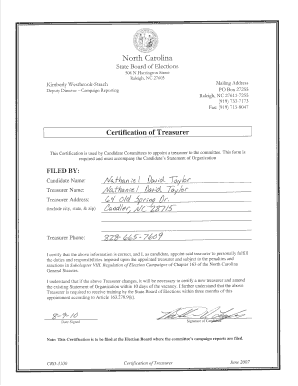 North Carolina
State Board of Elections
506 N Harrington Street
Raleigh, NC 27603
Kimberly Westbrook-Strach
Deputy Director – Campaign Reporting
Mailing Address
PO Box 27255
Raleigh, NC 27611-7255
(919) 733-7173
Fax (919) 715-8047
Certification of Treasurer
This Certification is used by Candidate Committees to appoint a treasurer to the committee. This form is
required and must accompany the Candidate's Statement of Organization
FILED BY:
Candidate Name: Nathaniel David Taylor
Treasurer Name: Nathaniel David Taylor
Treasurer Address: 64 Old Spring Dr.
(include city, state, & zip) Candler, NC 28715
Treasurer Phone: 828-665-7609
I certify that the above information is correct, and I, as candidate, appoint said treasurer to personally fulfill
the duties and responsibilities imposed upon the appointed treasurer and subject to the penalties and
sanctions in Subchapter VIII Regulation of Election Campaigns of Chapter 163 of the North Carolina
General Statutes.
I understand that if the above Treasurer changes, it will be necessary to certify a new treasurer and amend the
existing Statement of Organization within 10 days of the vacancy. I further understand that the above
Treasurer is required to receive training by the State Board of Elections within three months of this
appointment according to Article 163.278.9(k).
8-9-10
Date Signed
Signature of Candidate
Note: This Certification is to be filed at the Election Board where the committee's campaign reports are filed.
CRO-3100
Certification of Treasurer
June 2007